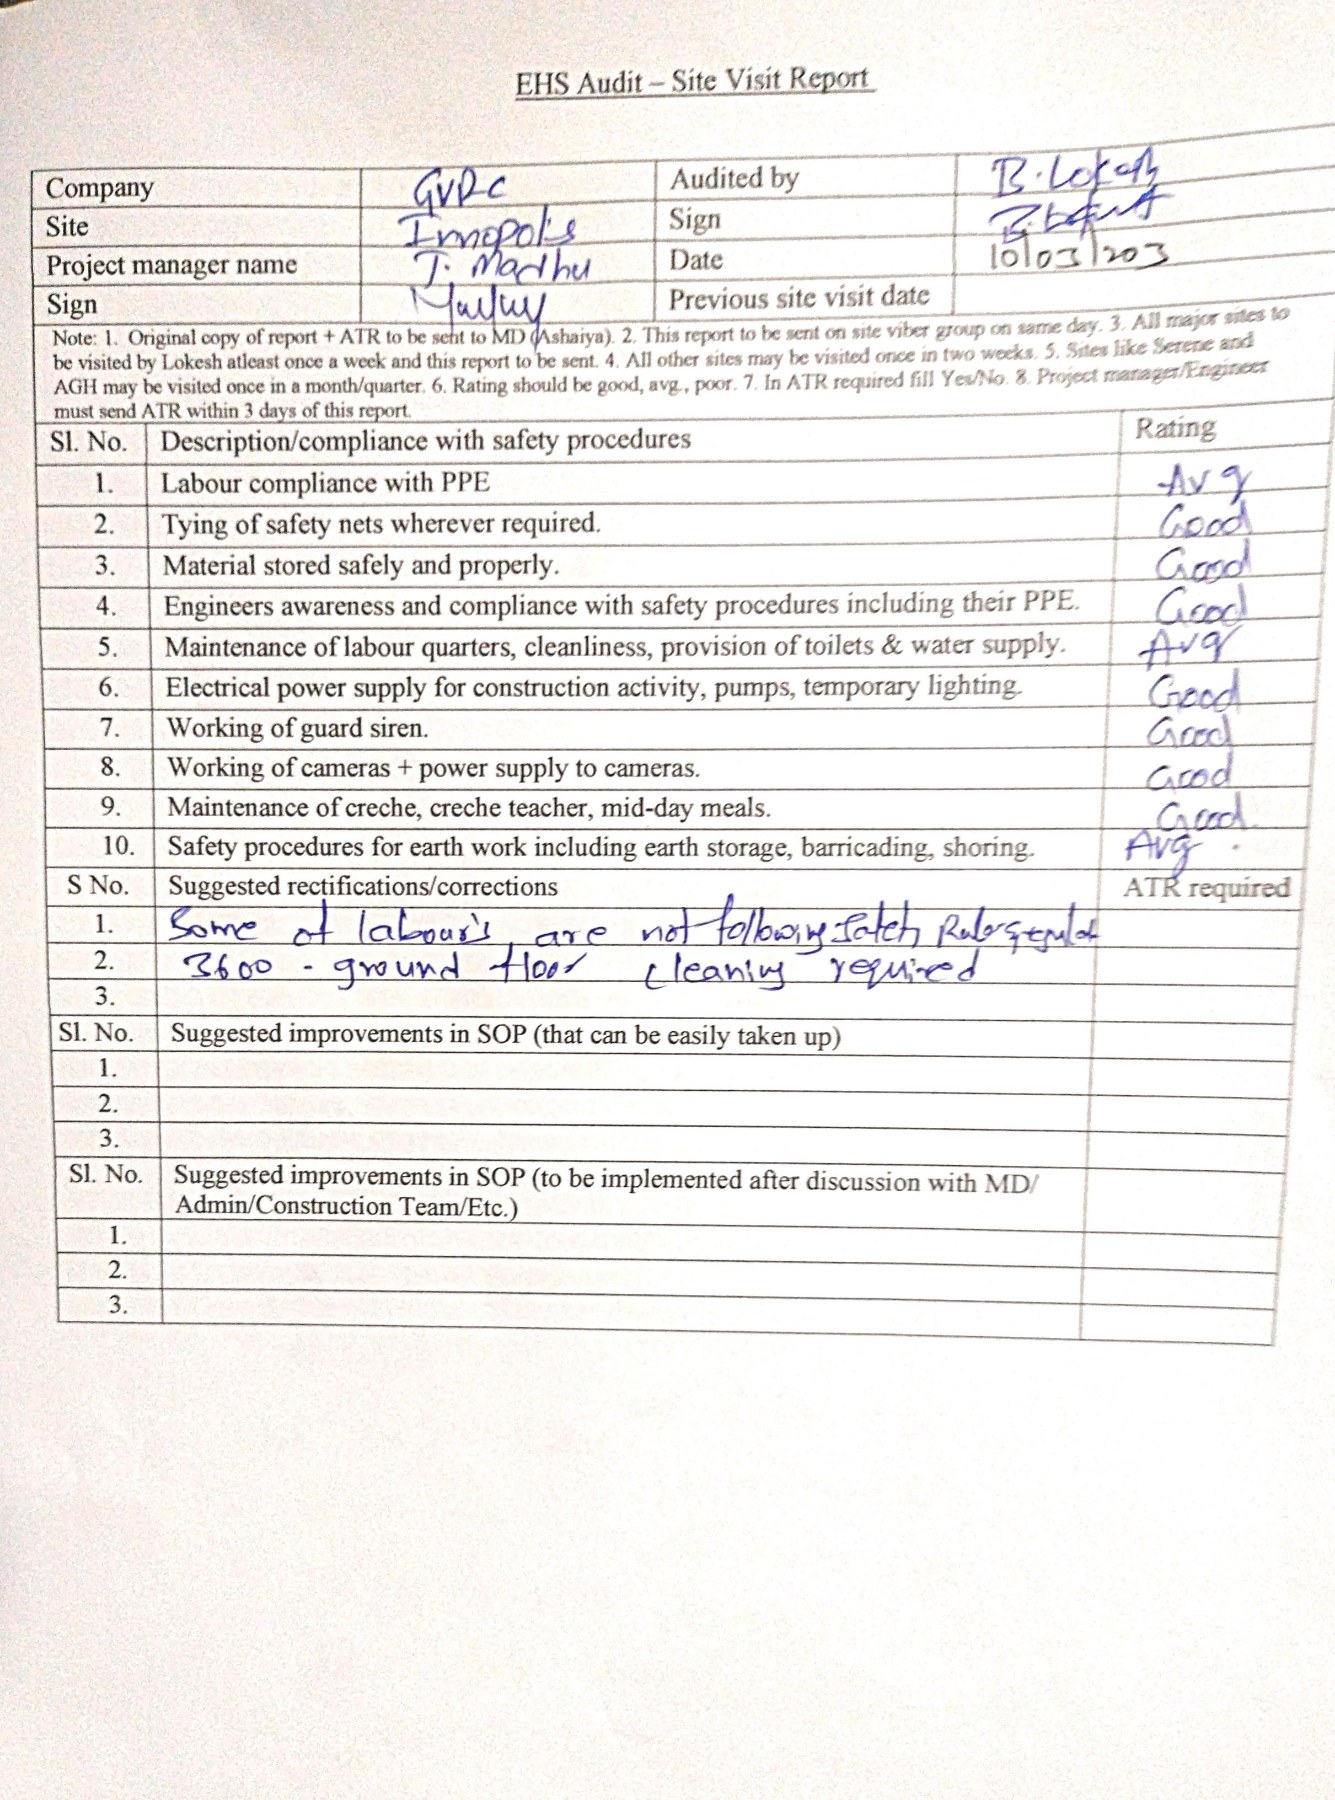 EHS Audit – Site Visit Report
Company GVRC Audited by B. Lokesh
Site Innopolis Sign
Project manager name T. Madhu Date 10/03/203
Sign Previous site visit date
Note: 1. Original copy of report + ATR to be sent to MD (Ashaiya). 2. This report to be sent on site viber group on same day. 3. All major sites to
be visited by Lokesh atleast once a week and this report to be sent. 4. All other sites may be visited once in two weeks. 5. Sites like Serene and
AGH may be visited once in a month/quarter. 6. Rating should be good, avg., poor. 7. In ATR required fill Yes/No. 8. Project manager/Engineer
must send ATR within 3 days of this report.
Sl. No. Description/compliance with safety procedures Rating
1. Labour compliance with PPE Avg
2. Tying of safety nets wherever required. Good
3. Material stored safely and properly. Good
4. Engineers awareness and compliance with safety procedures including their PPE. Good
5. Maintenance of labour quarters, cleanliness, provision of toilets & water supply. Avg
6. Electrical power supply for construction activity, pumps, temporary lighting. Good
7. Working of guard siren. Good
8. Working of cameras + power supply to cameras. Good
9. Maintenance of creche, creche teacher, mid-day meals. Good
10. Safety procedures for earth work including earth storage, barricading, shoring. Avg
S No. Suggested rectifications/corrections ATR required
1. Some of labour's are not following
2. 3600 - ground floor cleaning required
3.
Sl. No. Suggested improvements in SOP (that can be easily taken up)
1.
2.
3.
Sl. No. Suggested improvements in SOP (to be implemented after discussion with MD/
Admin/Construction Team/Etc.)
1.
2.
3.